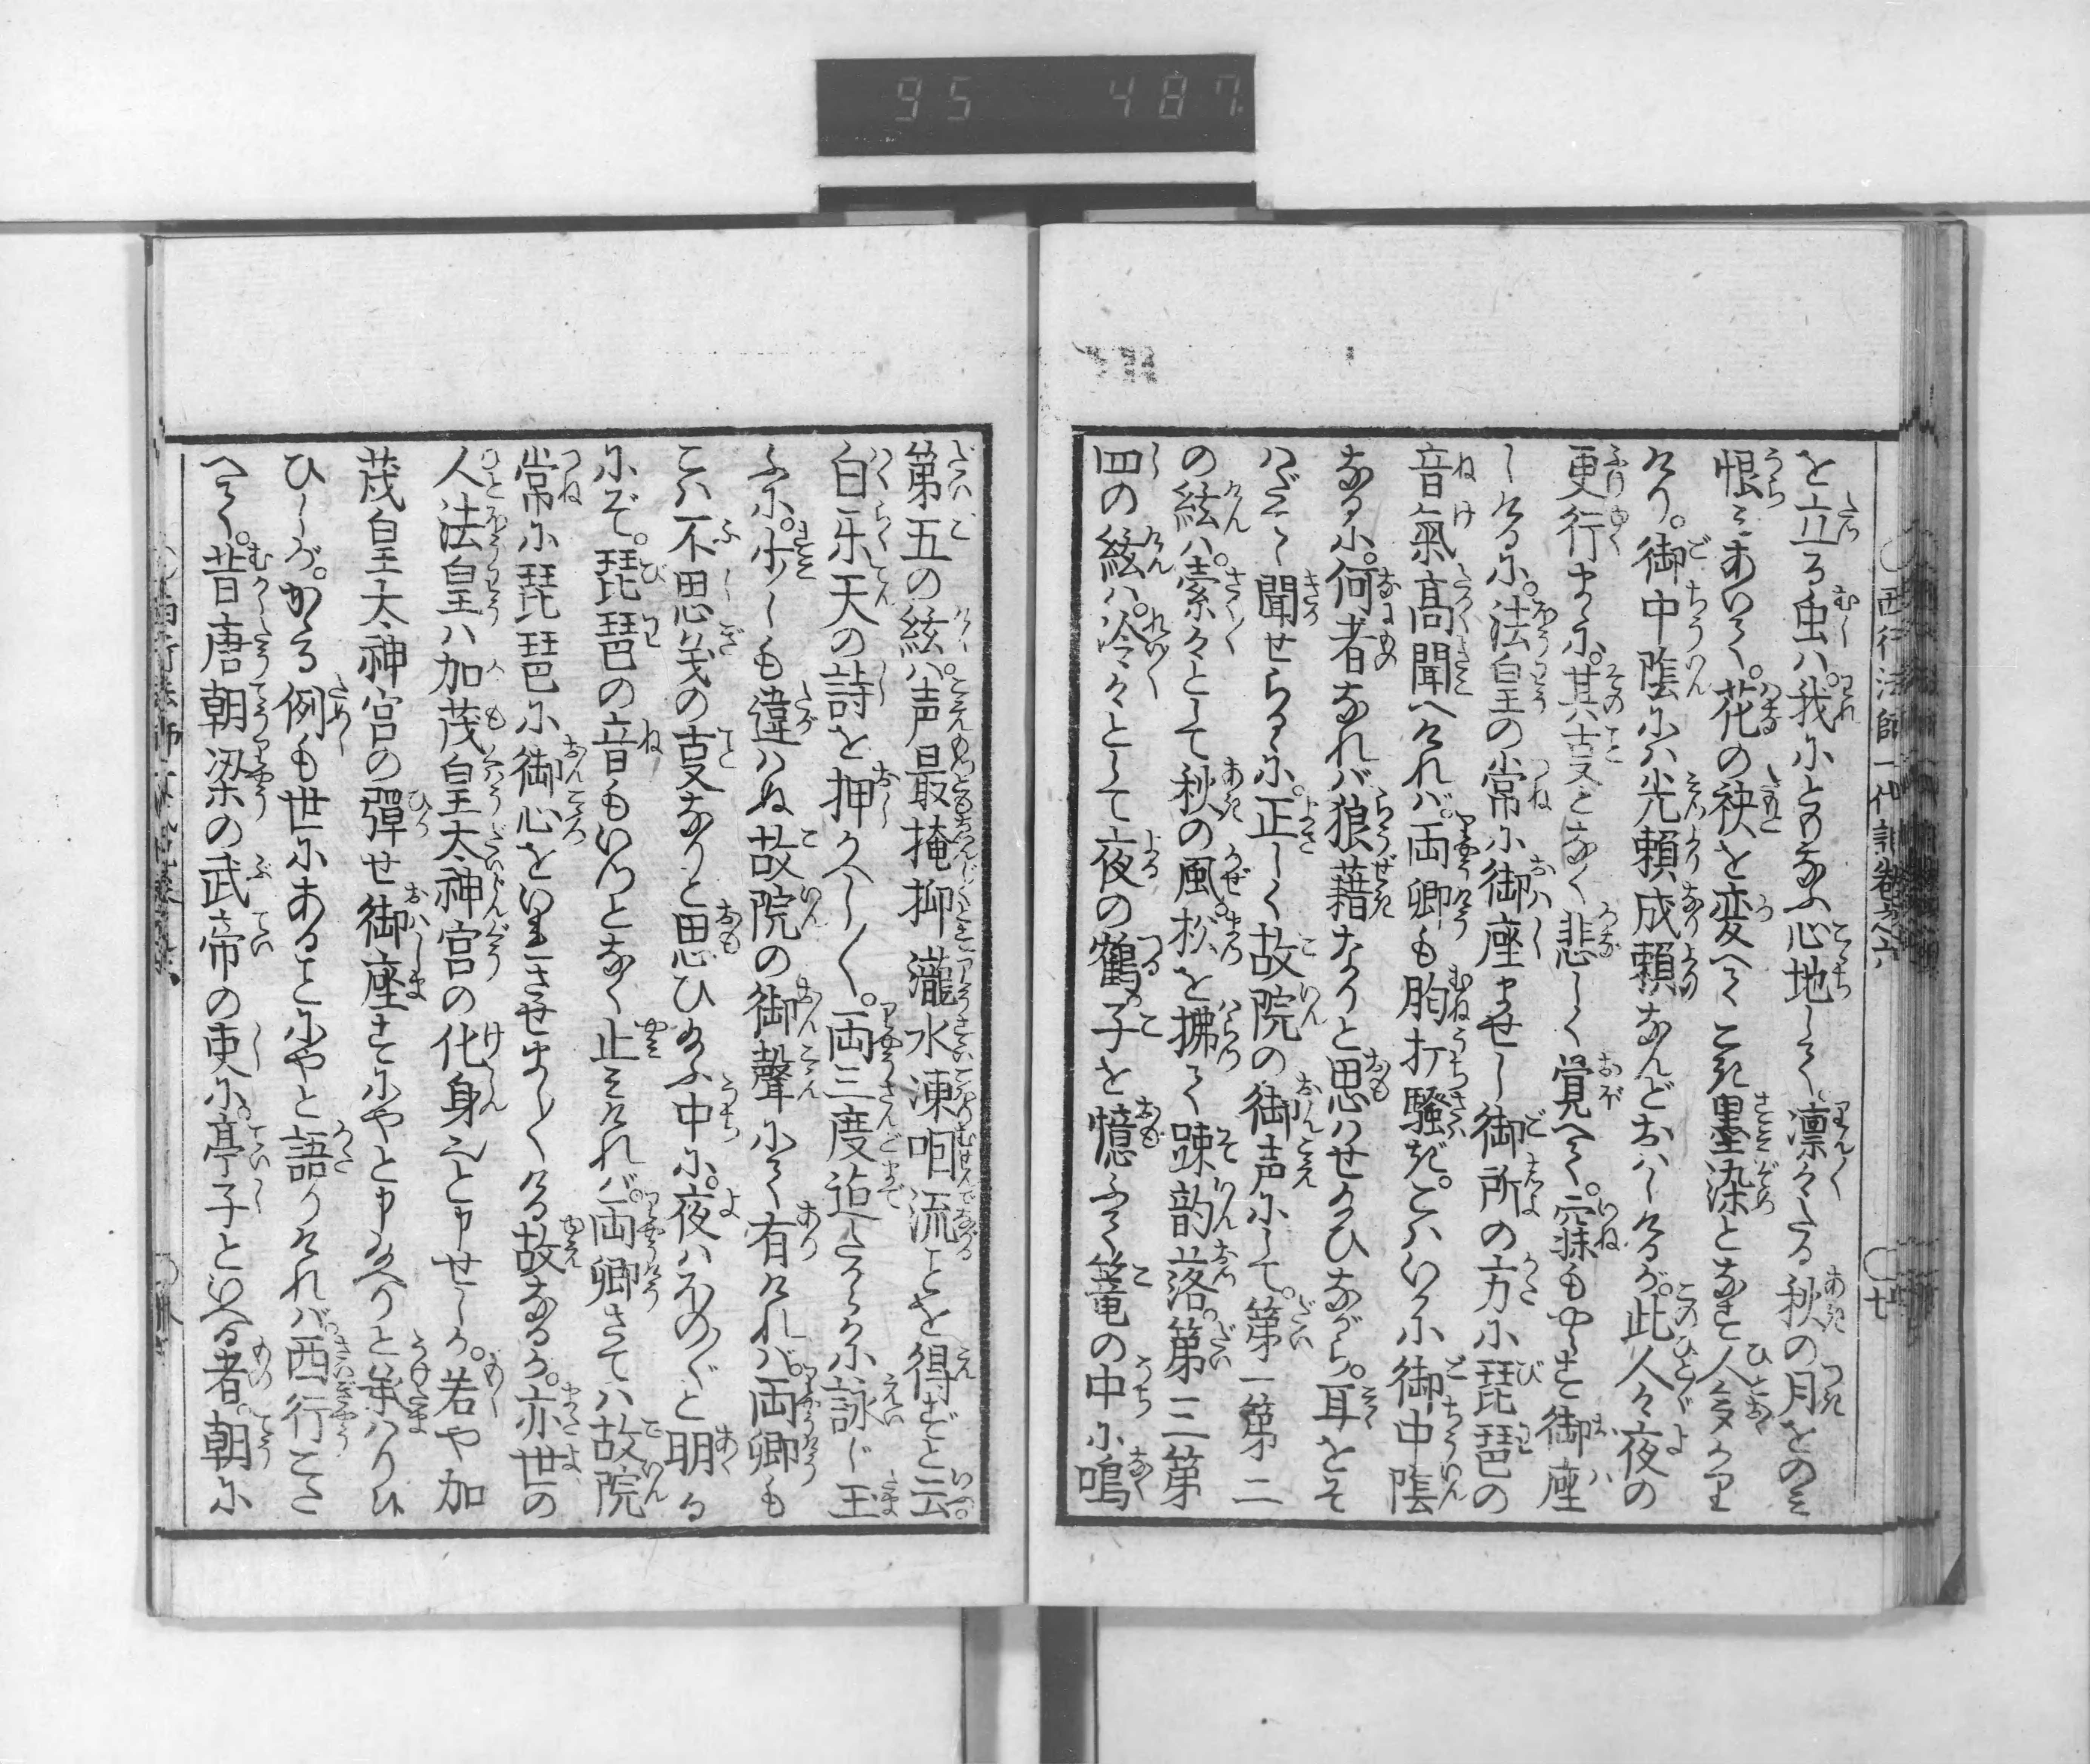 95 487
西行法師一代記巻之六 廿
を立る虫ハ我にともなふ心地して凛々たる秋の月をのミ
恨ミあいて。花の袂を変へてこき墨染となさと人多かり
けり。御中陰にハ光頼成頼なんどおハしけるが。此人々夜の
更行まゝに。其事となく悲しく覚へて。寐もやらさ御座
しけるに。法皇の常に御座ませし御所の方に琵琶の
音氣高聞へけれバ。両卿も胸打騒ぎ。こハいかに御中陰
なるに。何者なれバ狼藉なりと思ハせ給ひながら。耳をそ
バだてゝ聞せらるに。正しく故院の御声にして。第一第二
の絃ハ索々として秋の風。松を拂て踈韵落。第三第
四の絃ハ冷々として夜の鶴。子を憶ふて篭の中に鳴
第五の絃ハ。声最掩抑瀧水凍咽流ことを得ずと云
白乐天の詩を押かへし〱。両三度迠たからかに詠じ玉
ふに。少しも違ハぬ故院の御聲にて有けれバ。両卿も
こハ不思儀の事なりと思ひ給ふ中に。夜ハほの〲と明る
にぞ。琵琶の音もいつとなく止ミけれバ。両卿さてハ故院
常に琵琶に御心をいれさせまし〱ける故なるか。亦世の
人法皇ハ加茂皇太神宮の化身也と申せしか。若や加
茂皇太神宮の彈せ御座さにやと申給へりと承ハりひ
ひしが。かゝる例も世にあることにやと語りけれバ。西行こた
へて。昔唐朝梁の武帝の吏に。亭子といへる者。朝に